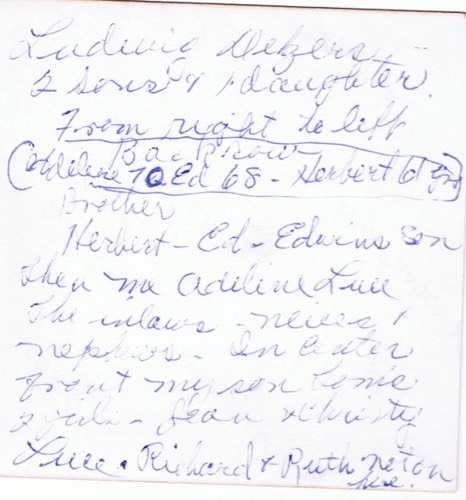 Ludwig Delzers -
2 sons & 1 daughter.
From right to left
Back row
(Adeline 70 Ed 68 - Herbert 61 yrs)
Brother
Herbert - Ed - Edwins son
then me Adeline Luce
The inlaws - neices &
nephews - In center
front my son
2 girls - Jean & Christy
Luce. Richard & Ruth